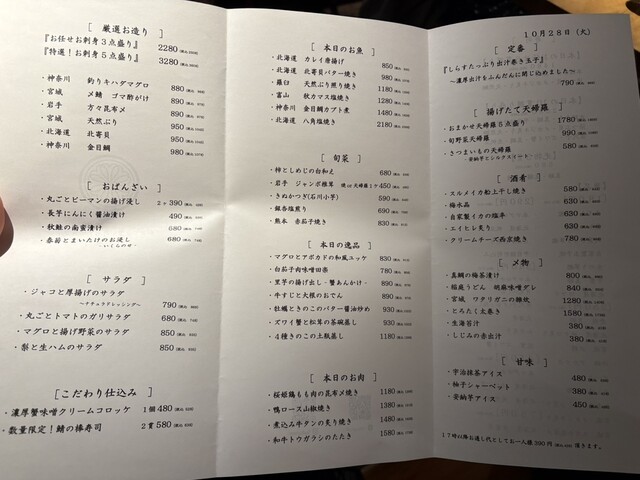 [ 厳選お造り ]
『お任せお刺身３点盛り』 2280
『特選！お刺身５点盛り』 3280
・神奈川 釣りキハダマグロ 880
・宮城 〆鯖 ゴマ酢がけ 890
・岩手 方々昆布〆 890
・宮城 天然ぶり 950
・北海道 北寄貝 950
・神奈川 金目鯛 980
[ おばんざい ]
・丸ごとピーマンの揚げ浸し 2ヶ390
・長芋にんにく醤油漬け 490
・秋鮭の南蛮漬け 680
・春菊とまいたけのお浸し 680
[ サラダ ]
・ジャコと厚揚げのサラダ
～ナチュラルドレッシング～ 790
・丸ごとトマトのガリサラダ 680
・マグロと揚げ野菜のサラダ 850
・梨と生ハムのサラダ 850
[こだわり仕込み]
・濃厚蟹味噌クリームコロッケ 1個480
・数量限定！鯖の棒寿司 2貫580
[ 本日のお魚 ]
・北海道 カレイ唐揚げ 850
・北海道 北寄貝バター焼き 980
・羅臼 天然ぶり照り焼き 1180
・富山 秋カマス塩焼き 1280
・神奈川 金目鯛カブト煮 1480
・北海道 八角塩焼き 2180
[ 旬菜 ]
・柿としめじの白和え 680
・岩手 ジャンボ椎茸 焼or天婦羅1ケ450
・きぬかつぎ(石川小芋) 590
・銀杏塩煎り 690
・熊本 赤茄子焼き 830
[ 本日の逸品 ]
・マグロとアボカドの和風ユッケ 830
・白茄子肉味噌田楽 780
・里芋の揚げ出し・蟹あんかけ・ 890
・牛すじと大根のおでん 890
・牡蠣ときのこのバター醤油炒め 930
・ズワイ蟹と松茸の茶碗蒸し 930
・４種きのこの土瓶蒸し 1180
[ 本日のお肉 ]
・桜姫鶏もも肉の昆布〆焼き 1180
・鴨ロース山椒焼き 1380
・煮込み牛タンの炙り焼き 1580
・和牛トウガラシのたたき 1480
１０月２８日（火）
[ 定番 ]
『しらすたっぷり出汁巻き玉子』
～濃厚出汁をふんだんに閉じ込めました～
790
[ 揚げたて天婦羅 ]
・おまかせ天婦羅５点盛り 1780
・旬野菜天婦羅 990
・さつまいもの天婦羅 580
・安納芋とシルクスイート・
[ 酒肴 ]
・スルメイカ船上干し焼き 580
・梅水晶 630
・自家製イカの塩辛 630
・エイヒレ炙り 630
・クリームチーズ西京焼き 780
[ 〆物 ]
・真鯛の梅茶漬け 800
・稲庭うどん 胡麻味噌ダレ 840
・宮城 ワタリガニの雑炊 1280
・とろたく太巻き 1580
・生海苔汁 380
・しじみの赤出汁 380
[ 甘味 ]
・宇治抹茶アイス 480
・柚子シャーベット 380
・安納芋アイス 450
１７時以降お通し代としてお一人様390円 頂きます。